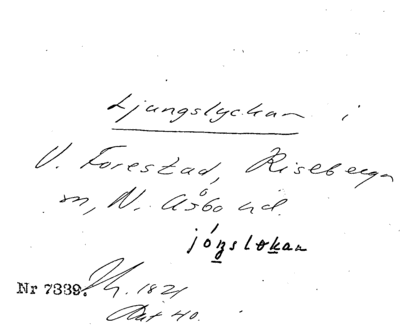 Ljungslyckan i
V. Forestad, Riseberga
sn, N. Åsbo hd.
jóngslokan
Nr 7339. Ak. 1821
Akt 40.